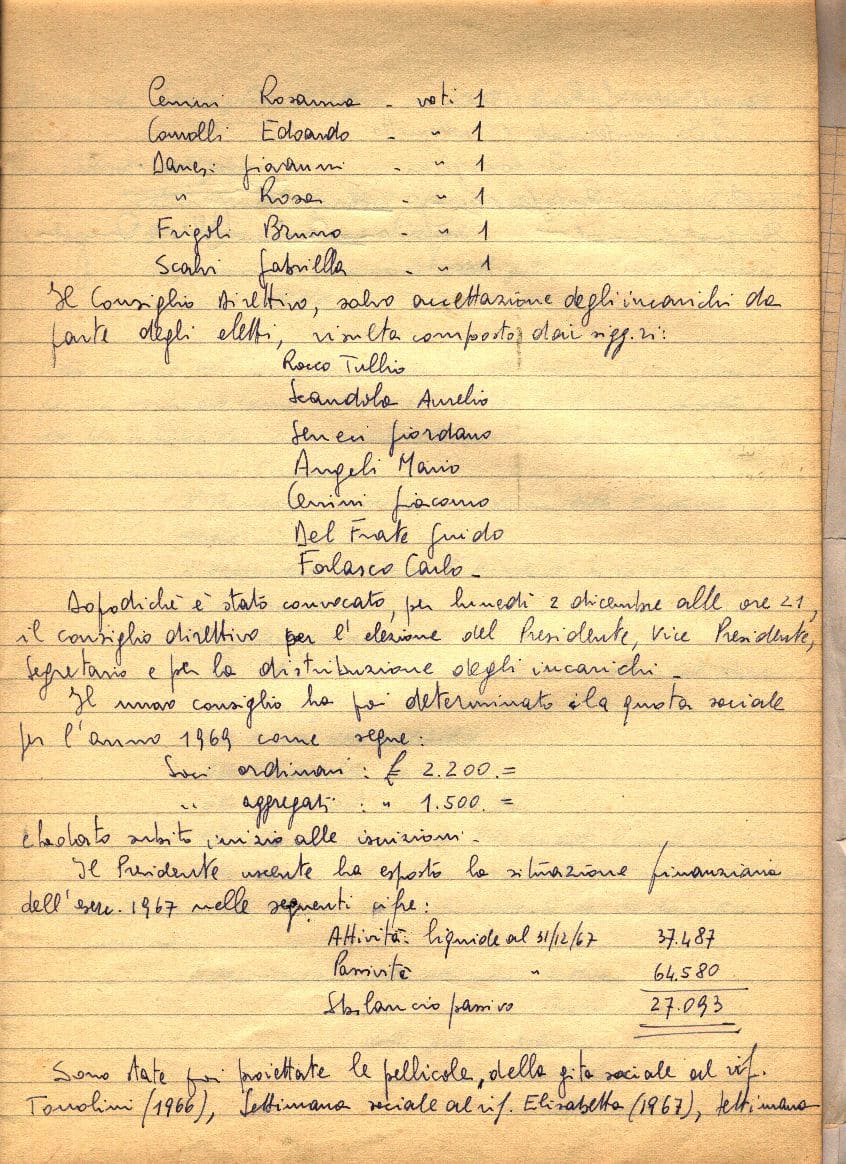 Cenini Rosanna - voti 1
Comolli Edoardo - " 1
Danesi Giovanni - " 1
" Rosa - " 1
Frigoli Bruno - " 1
Scalvi Gabriella - " 1
Il Consiglio Direttivo, salvo accettazione degli incarichi da
parte degli eletti, risulta composto dai sigg.ri:
Rocco Tullio
Scandola Aurelio
Seneci Giordano
Angeli Mario
Cenini Giacomo
Del Frate Guido
Forlasco Carlo -
Dopodichè è stato convocato, per lunedì 2 dicembre alle ore 21,
il consiglio direttivo per l'elezione del Presidente, Vice Presidente,
Segretario e per la distribuzione degli incarichi -
Il nuovo consiglio ha poi determinato la quota sociale
per l'anno 1969 come segue:
Soci ordinari : £ 2.200.=
" aggregati : " 1.500. =
e ha dato subito inizio alle iscrizioni -
Il Presidente uscente ha esposto la situazione finanziaria
dell'eserc. 1967 nelle seguenti cifre:
Attività liquide al 31/12/67 37.487
Passività " 64.580
Sbilancio passivo 27.093
Sono state poi proiettate le pellicole, della gita sociale al rif.
(1966), Settimana sociale al rif. Elisabetta (1967), settimana